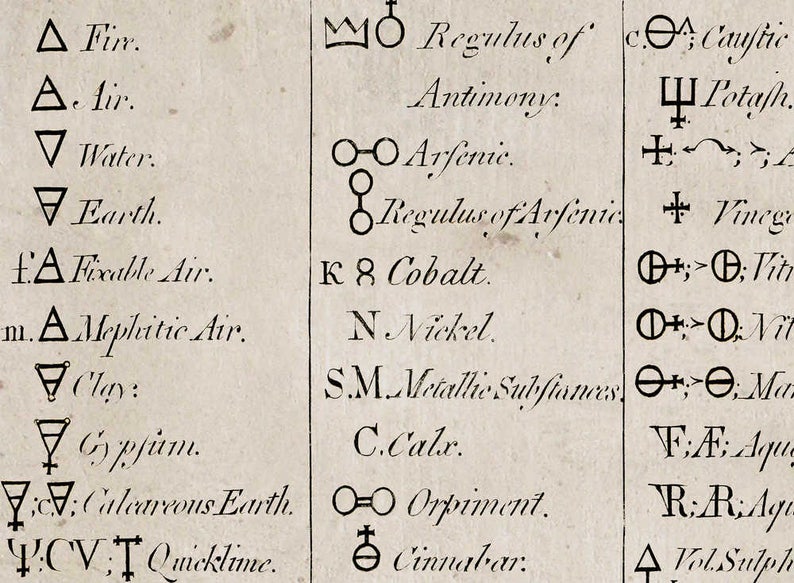 Fire.
Air.
Water.
Earth.
f. Fixable Air.
m. Mephitic Air.
Clay:
Gypſum.
;c ; Calcareous Earth.
:CV; Quicklime.
Regulus of
Antimony:
Arſenic.
Regulus of Arſenic.
K Cobalt.
N Nickel.
S.M. Metallic Subſtances.
C. Calx.
Orpiment.
Cinnabar:
c. ; Cauſtic
Potaſh.
Vinega
Vitr
Nit
Mar
F; Æ; Aqua
R; R; Aqu
Vol. Sulph